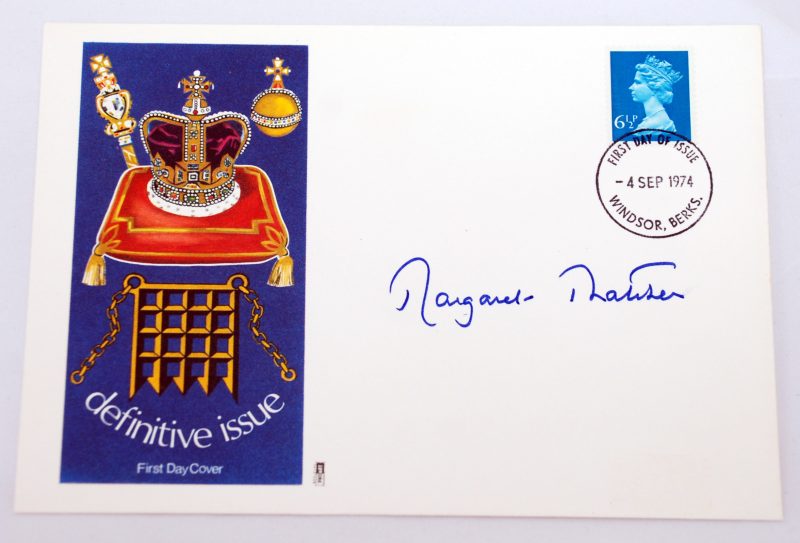 6½P
FIRST DAY OF ISSUE
- 4 SEP 1974
WINDSOR, BERKS.
Margaret Thatcher
definitive issue
First Day Cover